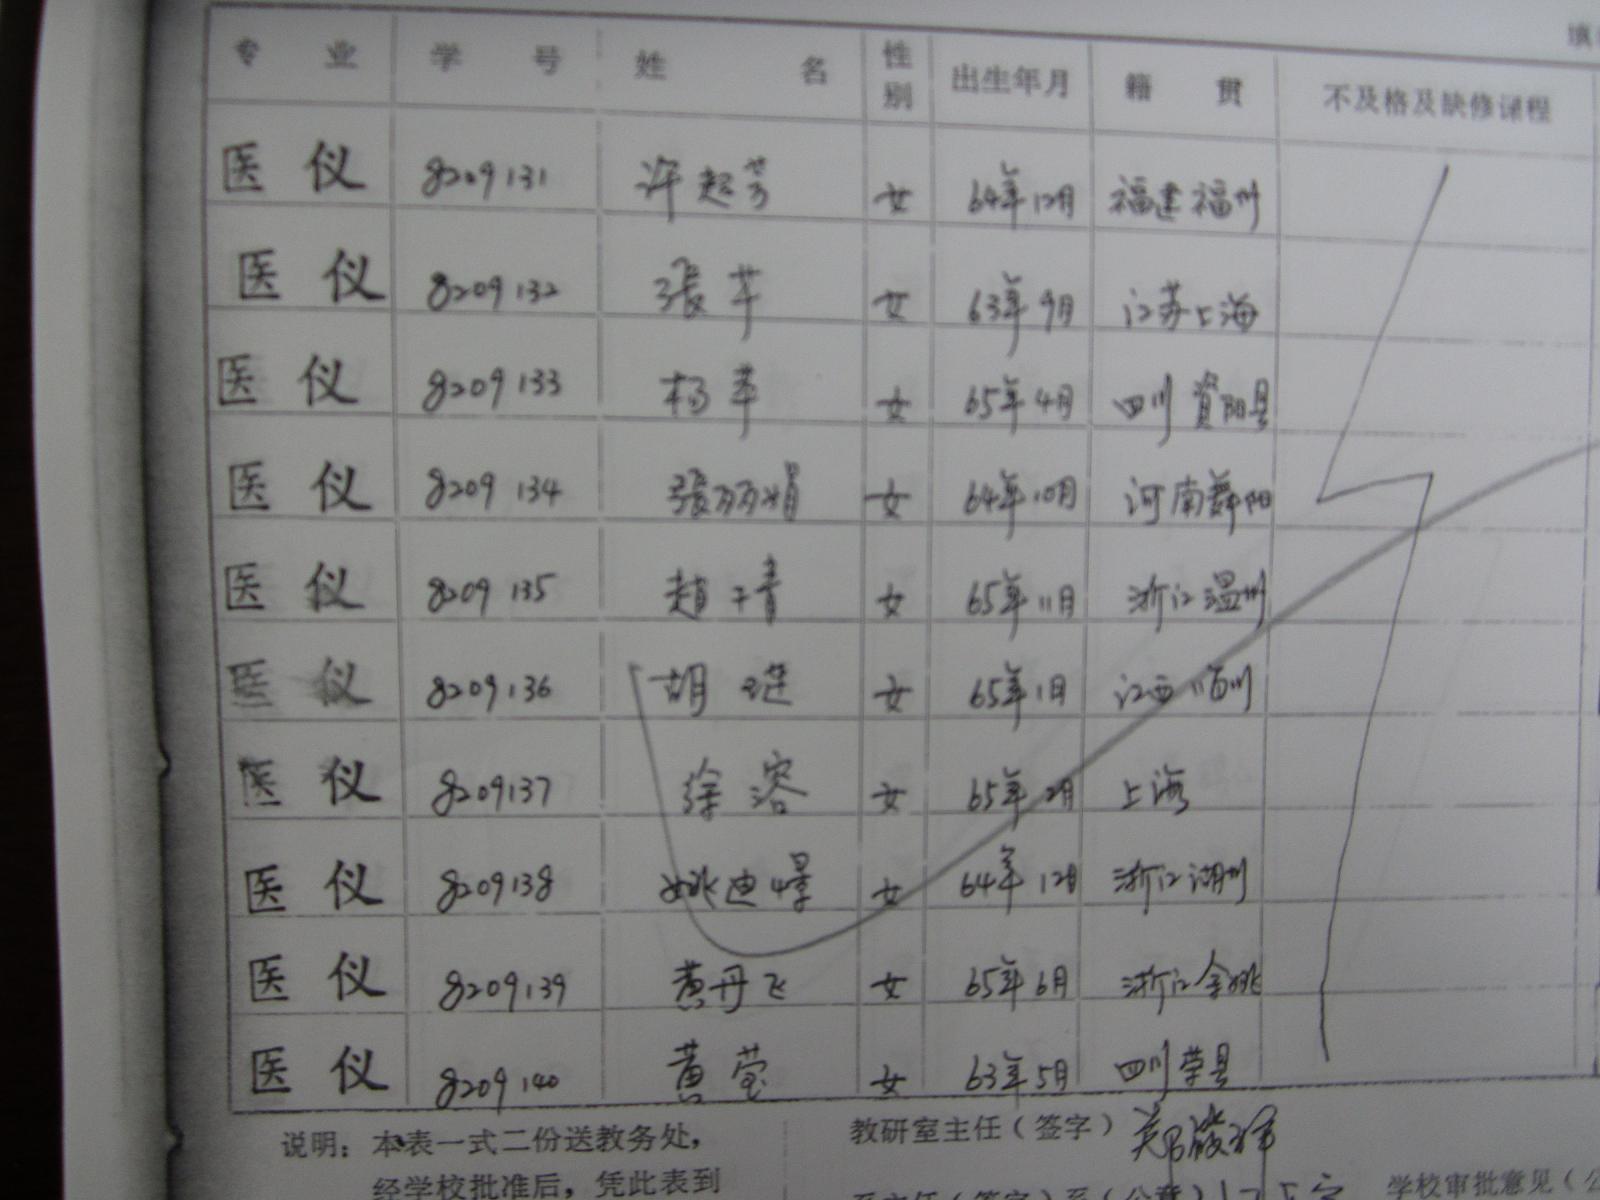 填
专 业 学 号 姓 名 性别 出生年月 籍 贯 不及格及缺修课程
医 仪 8209131 许超芳 女 64年12月 福建福州
医 仪 8209132 張 苹 女 63年9月 江苏上海
医 仪 8209133 杨 苹 女 65年4月 四川 資阳县
医 仪 8209134 張丽娟 女 64年10月 河南舞阳
医 仪 8209135 趙 青 女 65年11月 浙江温州
医 仪 8209136 胡 女 65年1月 江西
医 仪 8209137 徐 溶 女 65年2月 上海
医 仪 8209138 姚迪 女 64年12月 浙江湖州
医 仪 8209139 黄丹飞 女 65年6月 浙江余姚
医 仪 8209140 黄 莹 女 63年5月 四川荣县
说明：本表一式二份送教务处，
经学校批准后，凭此表到
教研室主任（签字）
系主任（签字）系（公章）
学校审批意见（公